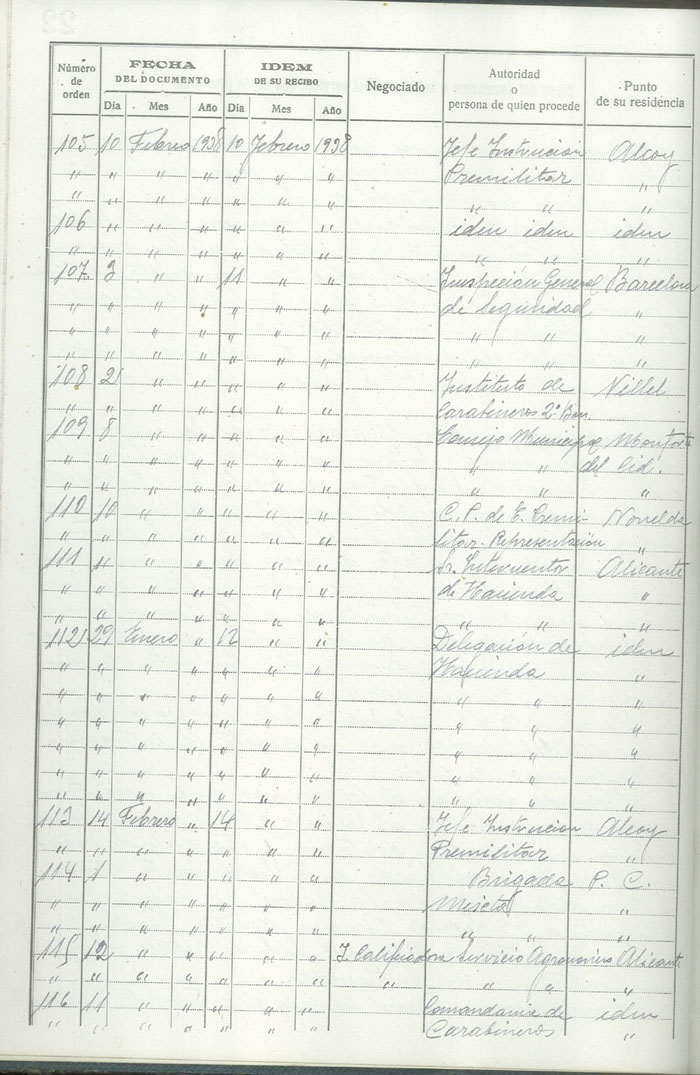 Número de orden | FECHA DEL DOCUMENTO | IDEM DE SU RECIBO | Negociado | Autoridad o persona de quien procede | Punto de su residencia
Día | Mes | Año | Día | Mes | Año
105 10 Febrero 1938 10 Febrero 1938 Jefe Instrucion Alcoy
" " " " " " " Premilitar "
" " " " " " " " " "
106 " " " " " " idem idem idem
" " " " " " " " " "
107 3 " " 11 " " Inspeción General Barcelona
" " " " " " " de Seguridad "
" " " " " " " " " "
" " " " " " " " " "
108 2 " " " " " Instituto de Villel
" " " " " " " Carabineros 2º Bon "
109 8 " " " " " Consejo Municipal Monforte
" " " " " " " " " del Cid.
" " " " " " " " " "
110 10 " " " " " C. P. de E. Premi- Novelda
" " " " " " " litar. Representación "
111 " " " " " " Sr. Interventor Alicante
" " " " " " " de Hacienda "
" " " " " " " " " "
112 29 Enero " 12 " " Delegación de idem
" " " " " " " Hacienda "
" " " " " " " " " "
" " " " " " " " " "
" " " " " " " " " "
" " " " " " " " " "
" " " " " " " " " "
113 14 Febrero " 14 " " Jefe Instrucion Alcoy
" " " " " " " Premilitar "
114 1 " " " " " Brigada P. C.
" " " " " " " "
" " " " " " " " " "
115 12 " " " " " J. Calificadora Servicio Agronomico Alicante
" " " " " " " " " " "
116 11 " " " " " Comandancia de idem
" " " " " " " Carabineros "